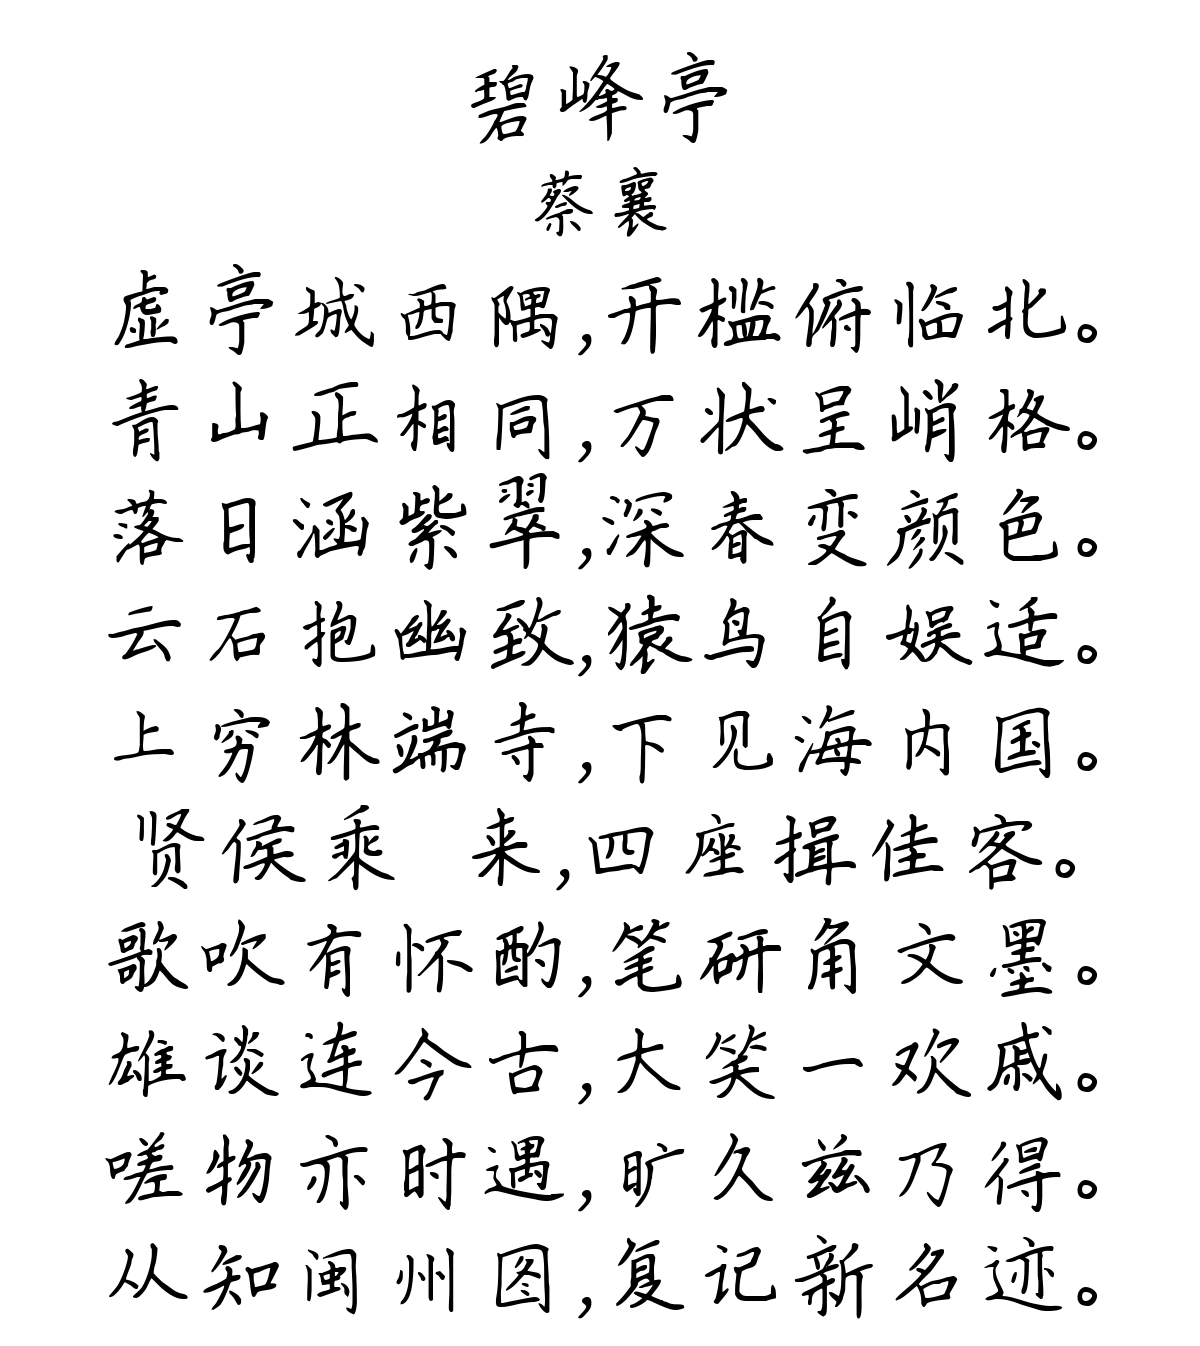 碧峰亭
蔡襄
虚亭城西隅,开槛俯临北。
青山正相同,万状呈峭格。
落日涵紫翠,深春变颜色。
云石抱幽致,猿鸟自娱适。
上穷林端寺,下见海内国。
贤侯乘 来,四座揖佳客。
歌吹有怀酌,笔研角文墨。
雄谈连今古,大笑一欢戚。
嗟物亦时遇,旷久兹乃得。
从知闽州图,复记新名迹。